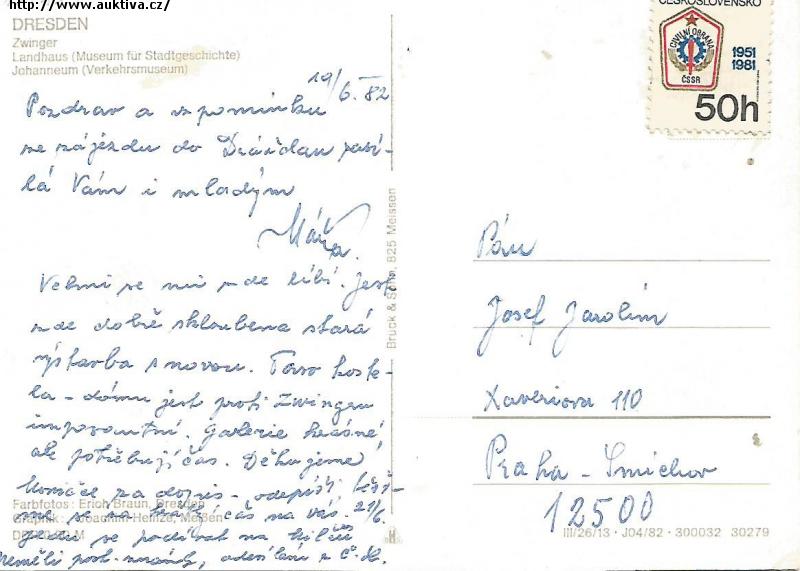 http://www.auktiva.cz/
DRESDEN
Zwinger
Landhaus (Museum für Stadtgeschichte)
Johanneum (Verkehrsmuseum)
19/6. 82
Pozdrav a vzpomínku
ze zájezdu do Drážďan posí-
lá Vám i mladým
Máňa.
Velmi se mi zde líbí. Jest
zde dobře skloubena stará
výstavba s novou. Torzo koste-
la - dómu jest proti Zwingru
imposantní. Galerie krásné,
ale potřebují čas. Děkujeme
za dopis - odepíši
se na Vás. 21/6.
se podívat na
Neměli pošt. známky, odesílám z Č.
Farbfotos: Erich Braun, Dresden
Grafik: Joachim Heinze, Meißen
Bruck & Sohn, 825 Meissen
ČESKOSLOVENSKO
CIVILNÍ OBRANA
ČSSR
1951
1981
50h
Pán
Josef Jarolím
Xaveriova 110
Praha - Smíchov
12500
III/26/13 · J04/82 · 300032 30279